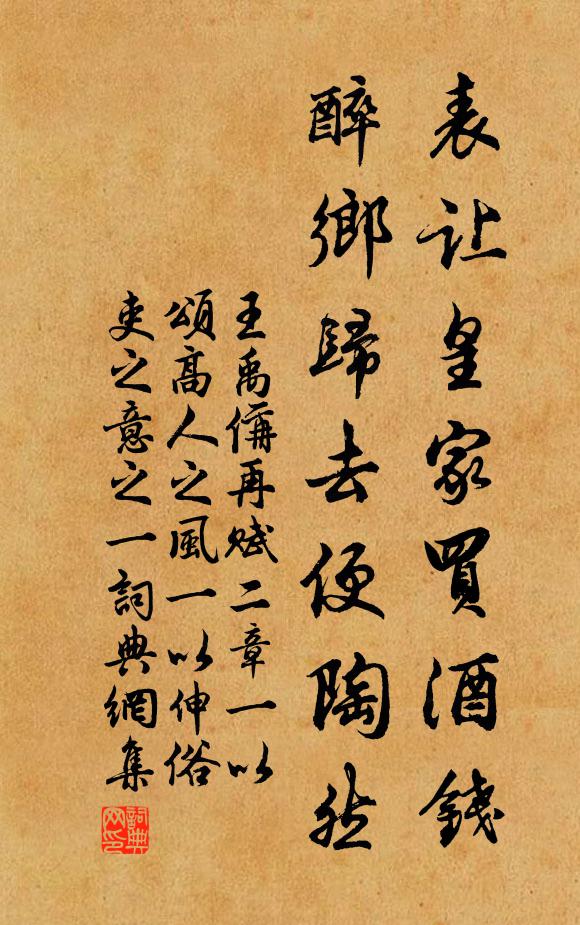 表让皇家買酒錢
醉鄉歸去便陶然
王禹偁再赋二章一以
頌高人之風一以伸俗
吏之意之一詞典網集
詞典网印